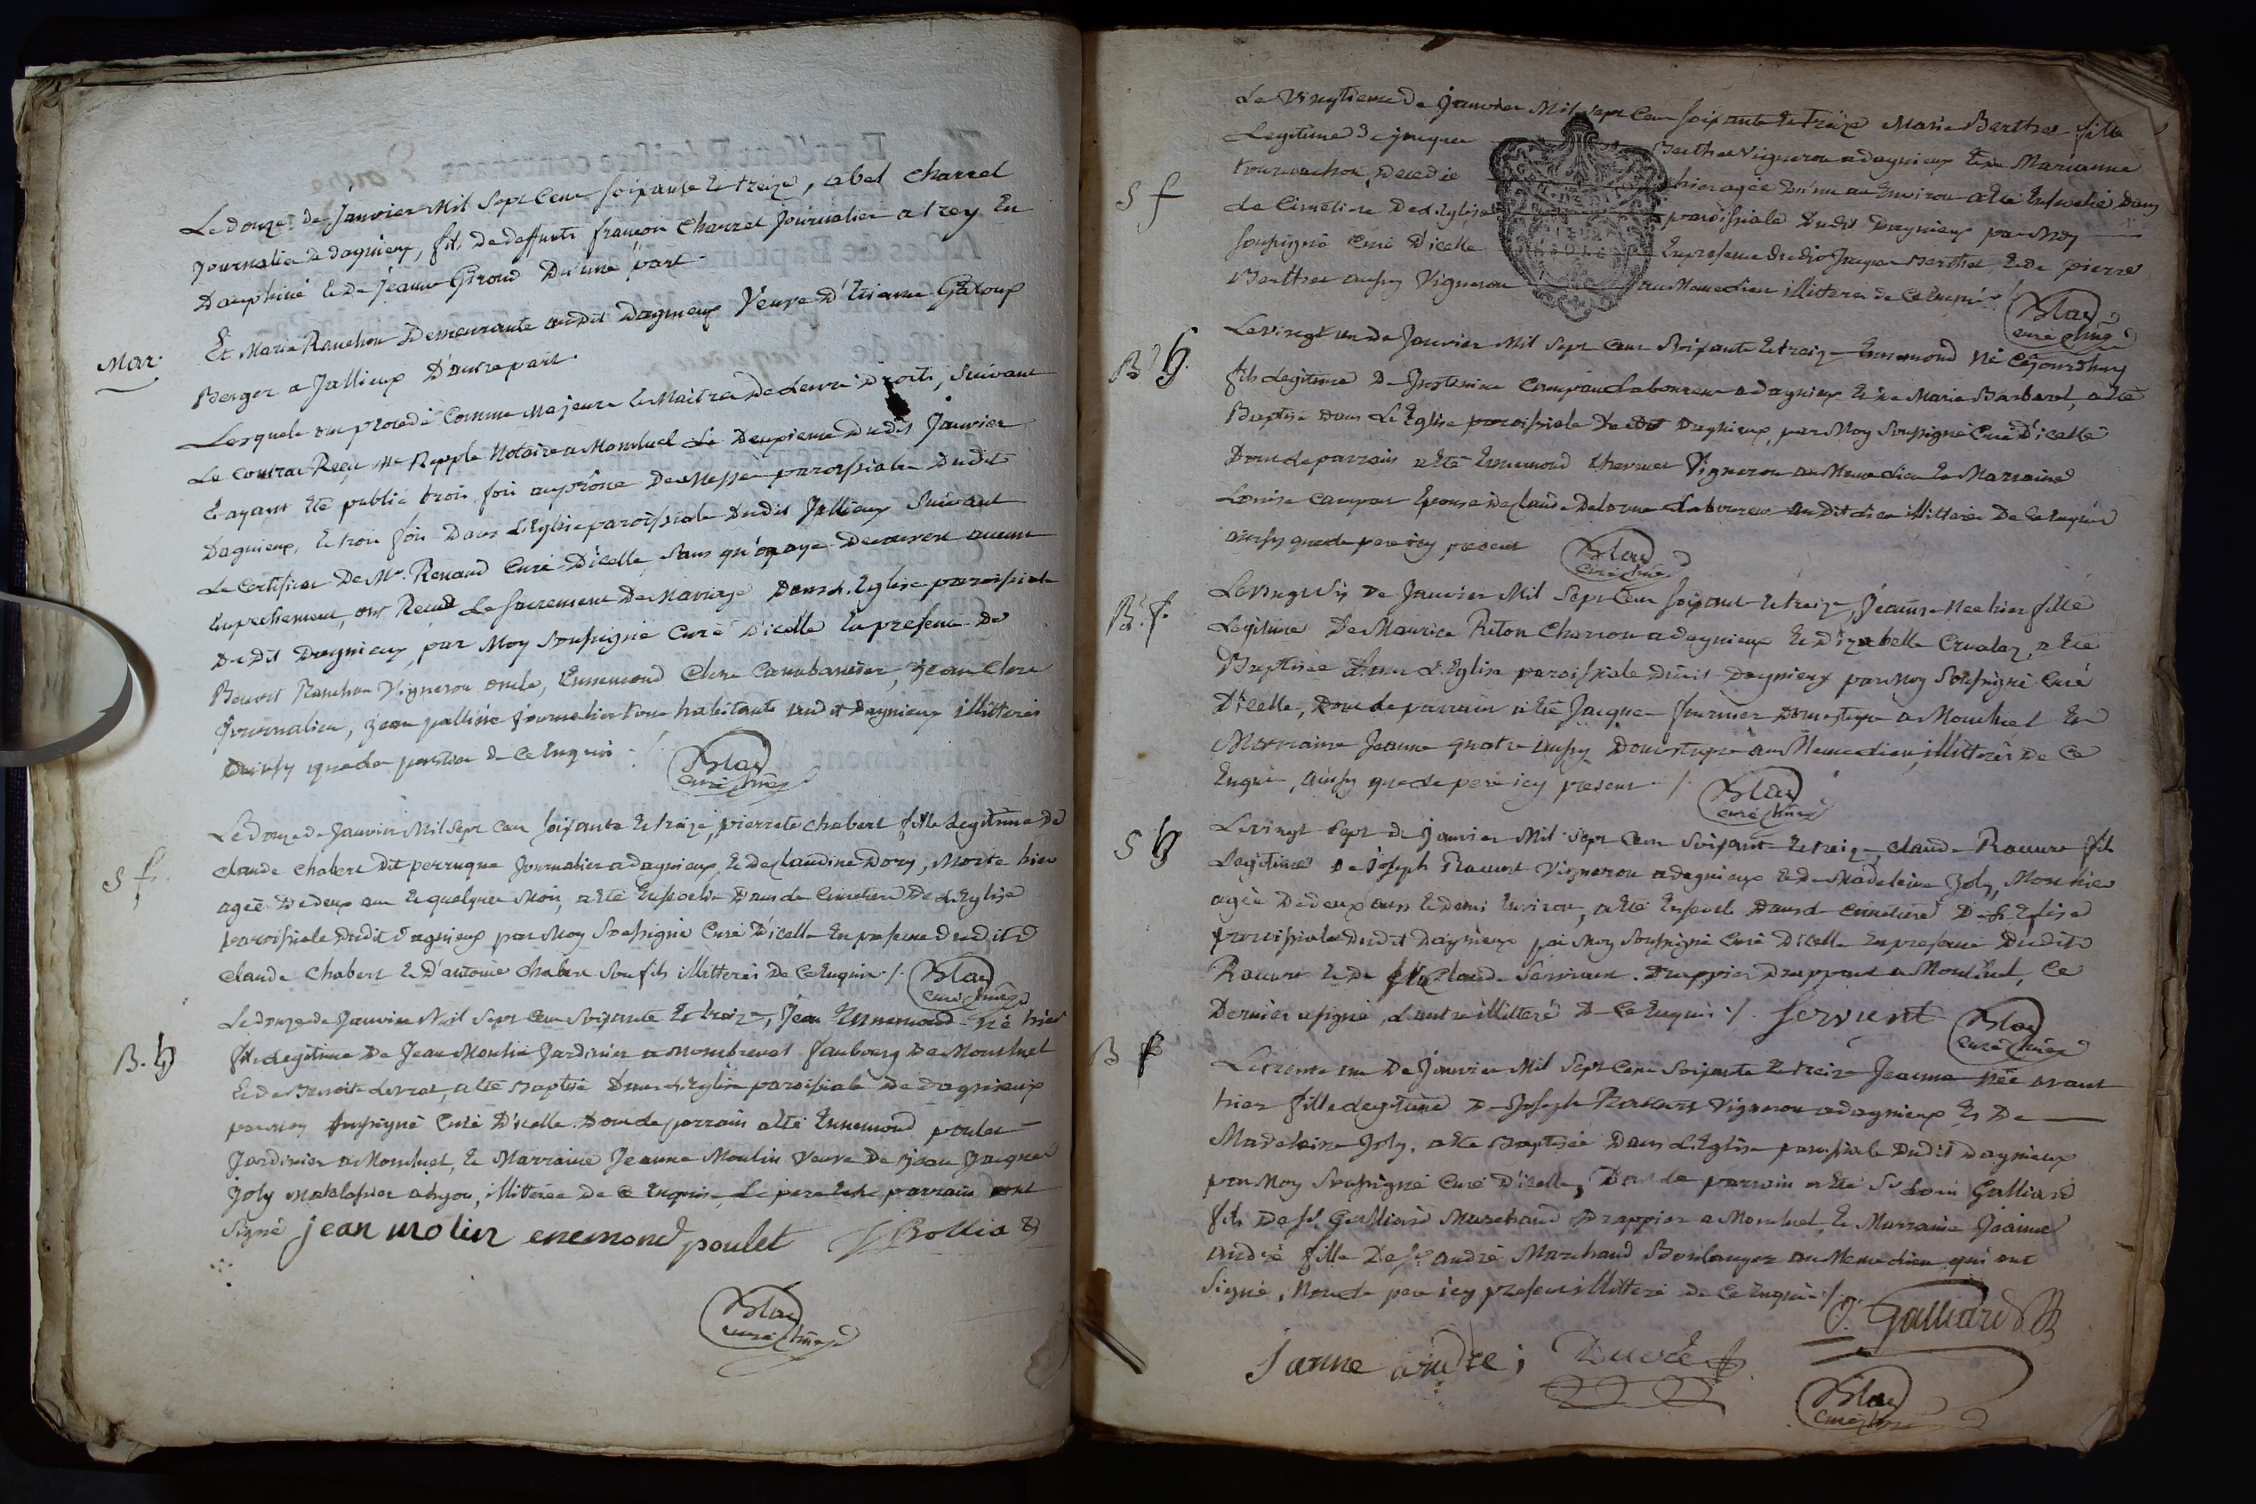 Mar.
Le douze de Janvier Mil Sept Cent soixante et treize, abel Charrel
Journalier a dagnieux, fils de deffunts françois Charrel Journalier a trey En
Dauphiné et de Jeanne Giroud D'une part.
Et Marie Ranchon Demeurante audit Dagnieux Veuve D'Etienne
Berger a Jallieux D'autre part.
Lesquels ont procédé Comme Majeurs et Maitres de Leurs Droits, suivant
Le Contrat Reçu Me Notaire a Montluel Le Deuxieme dudit Janvier
Et ayant été publié trois fois au prône De Messe paroissiale dudit
Dagnieux, Et trois fois Dans L'Eglise paroissiale dudit Jallieux Suivant
Le Certificat De Mr. Renaud Curé D'icelle, sans qu'on aye Decouvert aucun
Empechement, ont Recu Le Sacrement De Mariage Dans L'Eglise paroissiale
Dudit Dagnieux par Moy Soussigné Curé D'icelle En presence De
Benoit Ranchon Vigneron oncle, Ennemond Clere, Jean Clere
Journalier, Jean Journalier tous habitants audit Dagnieux illitterés
Ainsy que les parties de Ce Enquis ./.
Blad
Curé
S f.
Le douze de Janvier Mil Sept Cent soixante et treize, pierrete Chabert fille Legitime de
Claude Chabert Dit perruque Journalier a dagnieux, et de Claudine Dory, Morte hier
agée De deux ans et quelques Mois, a été Ensevelie Dans Le Cimetiere De L'Eglise
paroissiale dudit Dagnieux par Moy Soussigné Curé D'icelle En presence dudit
Claude Chabert et D'antoine Chabert Son fils illitterés De Ce Enquis ./.
Blad
Curé
B. g
Le douze de Janvier Mil Sept Cent Soixante et treize, Jean Ennemond né hier
fils Legitime De Jean Moulin Jardinier a faubourg De Montluel
Et de Benoite Livrat, a été Baptisé Dans L'Eglise paroissiale De dagnieux
par moy Soussigné Curé D'icelle. Dont le parrain a été Ennemond poulet
Jardinier a Montluel, et Marraine Jeanne Moulin Veuve De Jean Jacques
Joly, illitterée De Ce Enquise, Le pere et Le parrain ont
Signé jean molin enemond poulet
Blad
Curé
S f
Le Vingtieme De Janvier Mil Sept Cent soixante et treize Marie Berthet fille
Legitime De Jacques Berthet Vigneron a dagnieux Et de Marianne
decedée hier agée D'un an Environ a été Ensevelie Dans
Le Cimetiere De L'Eglise paroissiale Dudit Dagnieux par Moy
Soussigné Curé D'icelle En presence dudit Jacques Berthet Et de pierre
Berthet aussy Vigneron au Meme Lieu illitterés de Ce Enquis ./.
Blad
Curé
B g.
Le vingt un de Janvier Mil Sept Cent Soixante et treize Ennemond Né Cejourdhuy
fils Legitime De Laboureur a dagnieux Et de Marie Barbaret, a été
Baptisé Dans L'Eglise paroissiale Dudit Dagnieux, par Moy Soussigné Curé D'icelle
Dont le parrain a été Ennemond Vigneron au Meme Lieu et Marraine
Louise Epouse de Claude Delorme Laboureur audit Lieu illitterés De Ce Enquis
ainsy que le pere icy present
Blad
Curé
B. f.
Le vingt Six De Janvier Mil Sept Cent soixante et treize, Jeanne Née hier fille
Legitime De Maurice Riton Charron a dagnieux Et D'izabelle, a été
Baptisée Dans L'Eglise paroissiale Dudit Dagnieux par Moy Soussigné Curé
D'icelle, Dont le parrain a été Jacques fournier Domestique a Montluel Et
Marraine Jeanne aussy Domestique au Meme Lieu, illitterés De Ce
Enquis, ainsy que le pere icy present ./.
Blad
Curé
S g
Le vingt Sept de Janvier Mil Sept Cent Soixante et treize, Claude Ravure fils
Legitime De Joseph Vigneron a dagnieux Et De Madeleine Joly, Mort hier
agée De deux ans Et demi Environ, a été Enseveli Dans Le Cimetiere De L'Eglise
paroissiale Dudit Dagnieux par Moy Soussigné Curé D'icelle En presence Dudit
Et de Claude Servant. Drappier Drappant a Montluel, Ce
Dernier a signé, L'autre illitteré De Ce Enquis ./. Servant
Blad
Curé
B f
Le trente un De Janvier Mil Sept Cent Soixante et treize Jeanne Née avant
hier fille Legitime De Joseph Vigneron a dagnieux Et De
Madeleine Joly. a été Baptisée Dans L'Eglise paroissiale Dudit Dagnieux
par Moy Soussigné Curé D'icelle, Dont le parrain a été Sr Louis Galliard
fils De Sr Galliard Marchand Drappier a Montluel Et Marraine Jeanne
andré fille De Sr andré Marchand Boulanger au Meme Lieu qui ont
Signé, Non Le pere icy present illitteré De Ce Enquis ./.
Galliard
Janne andre
Blad
Curé